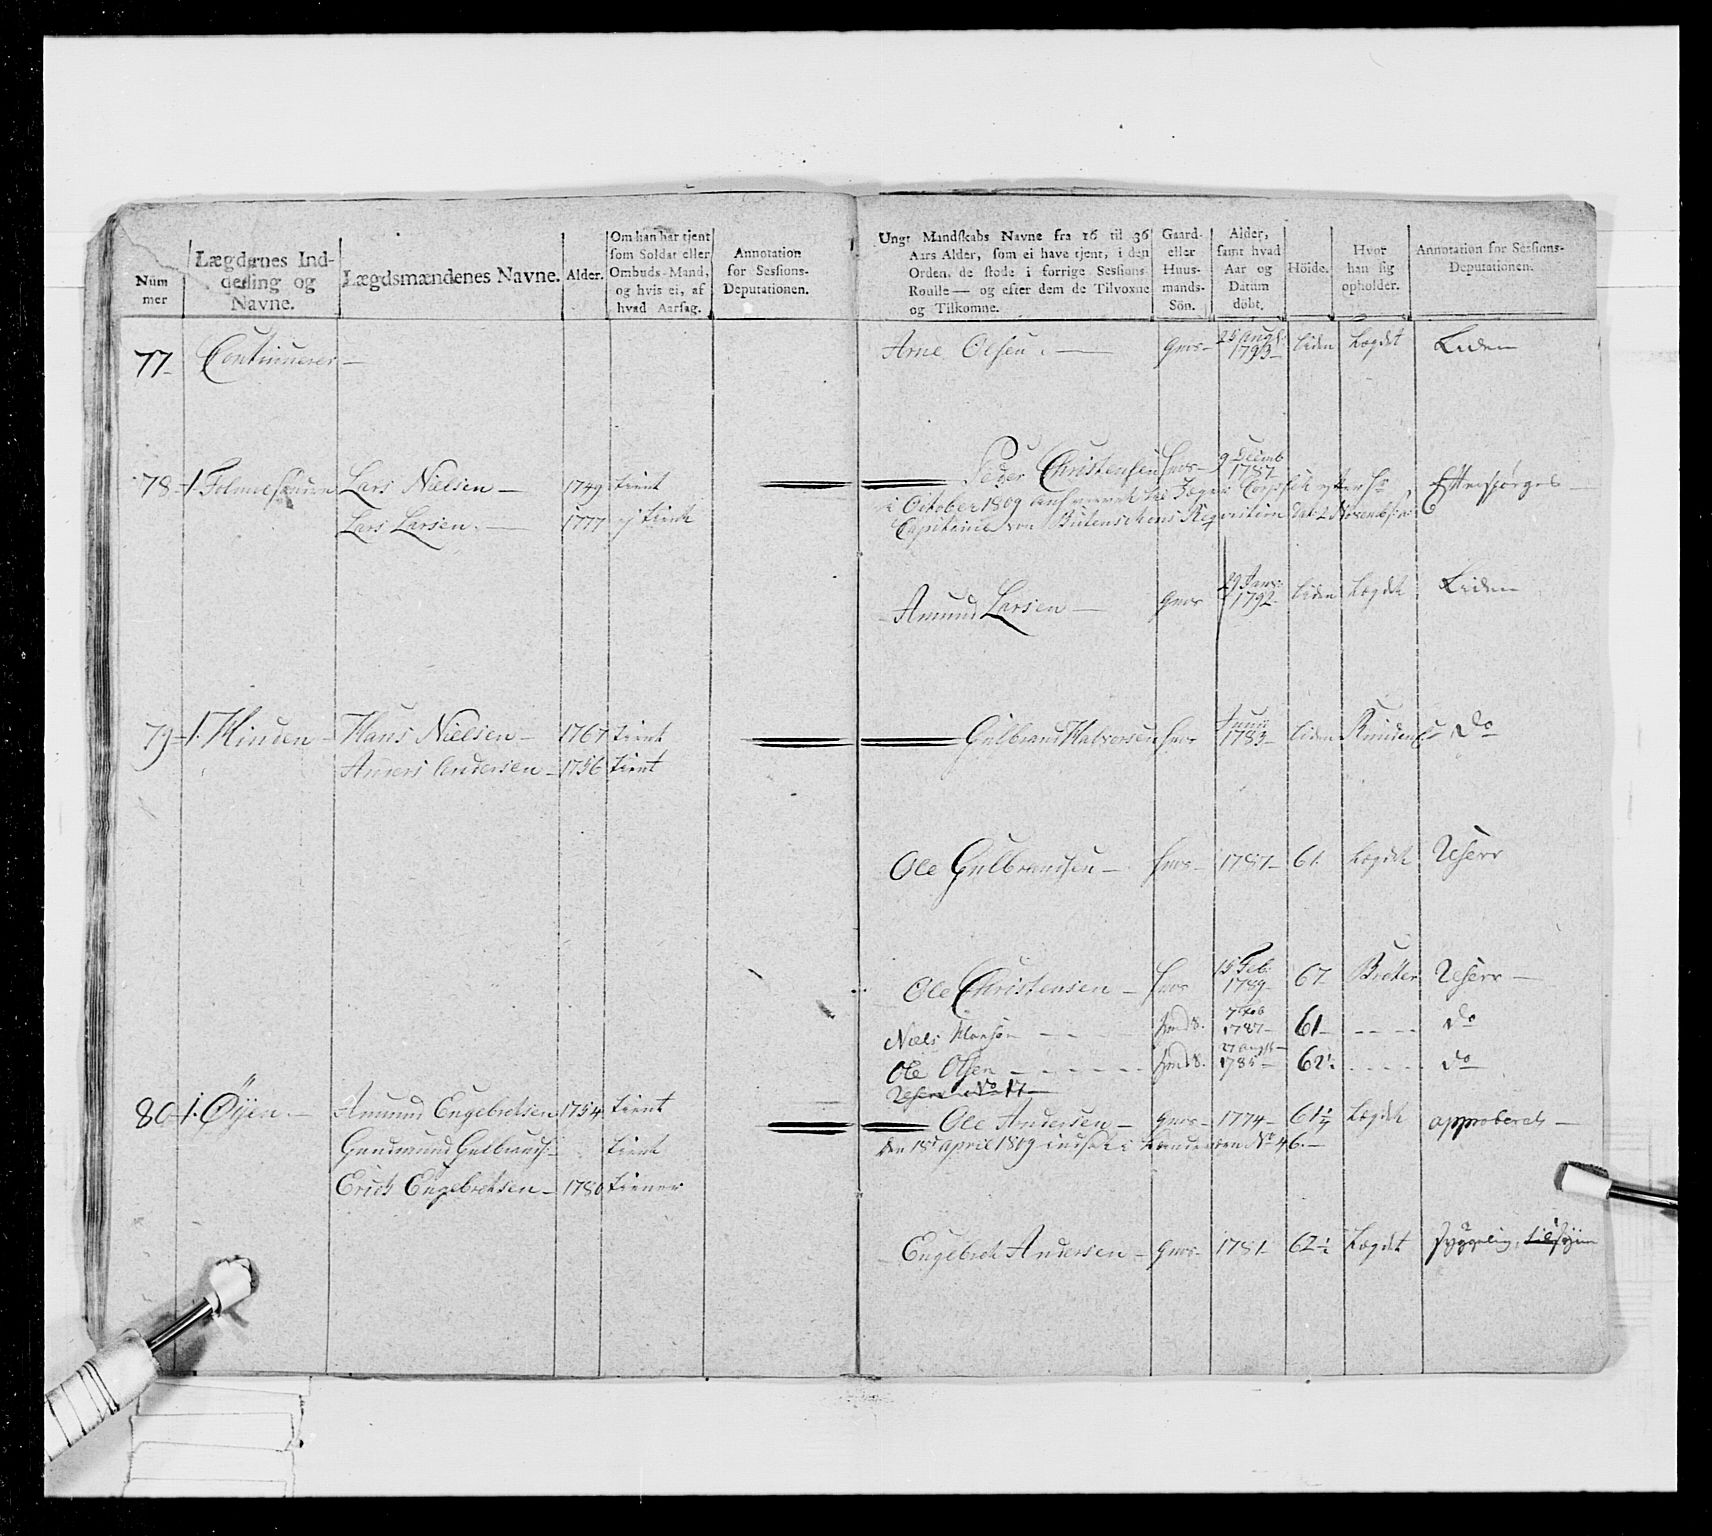 Num
mer
Lægdernes Ind-
deling og
Navne.
Lægdsmændenes Navne.
Alder.
Om han har tjent
som Soldat eller
Ombuds-Mand,
og hvis ei, af
hvad Aarsag.
Annotation
for Sessions-
Deputationen.
Ungt Mandskabs Navne fra 16 til 36
Aars Alder, som ei have tjent, i den
Orden, de stode i forrige Sessions-
Roulle — og efter dem de Tilvoxne
og Tilkomne.
Gaard-
eller
Huus-
mands-
Sön.
Alder,
samt hvad
Aar og
Datum
döbt.
Höide.
Hvor
han sig
opholder.
Annotation for Sessions-
Deputationen.
77 Continuerer —
Arne Olsen. — Gms — 25 Augs: 1793 — liden Lægdet Liden
78 — 1. Lars Nielsen — 1749 tient
Peder Christensen hms — 9 Decemb 1787 Efterspørges —
Lars Larsen. — 1777 ej tient
i October 1809
Capitaine von Requisition
Amund Larsen — Gms 29 Janv: 1792 liden Lægdet Liden
79 — 1. Minden — Hans Nielsen — 1767 tient
Gulbrand Halvorsen hms 1783 — liden do
Anders Andersen — 1756 tient
Ole Gulbrandsen — hms — 1787 — 61. Lægdet Reserv
Ole Christensen — hms 15 Feb. 1789 — 67 Reserv —
Niels — — — 7 Feb 1787 — 61 — — — — do
Ole Olsen — — — — 27 Augst 1785 — 62 — — — — do
Reserv No 17
80 — 1. Øyen. — Amund Engebretsen 1754 tient
Ole Andersen — Gms — 1774 — 61½ Lægdet approberet —
Gundmund Gulbrands: — tient
den 18 April 1819 indsat i No 46. —
Erich Engebretsen — 1780 tiener
Engebret Andersen — Gms — 1781 — 62½ Lægdet sygelig,